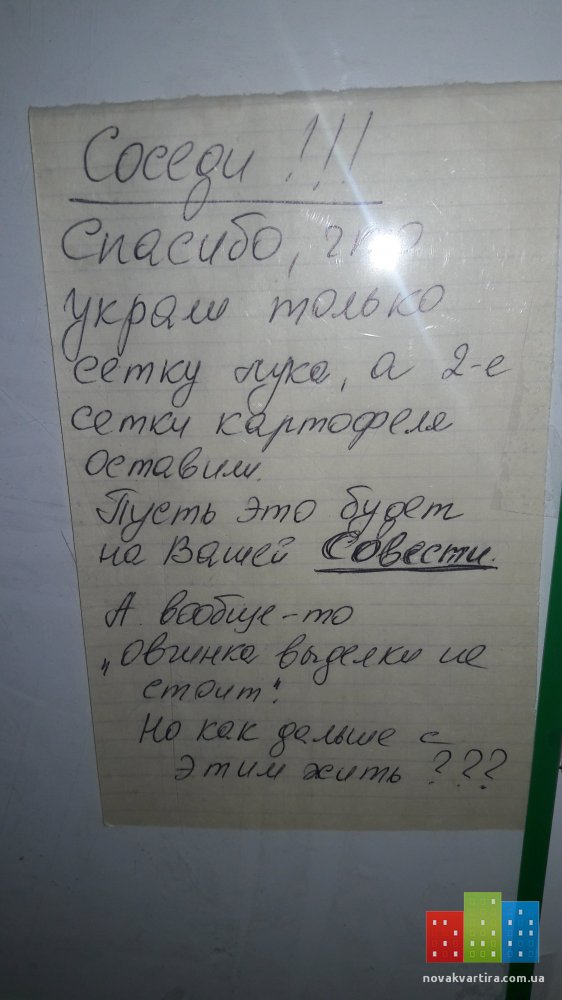 Соседи !!!
Спасибо, что
украли только
сетку лука, а 2-е
сетки картофеля
оставили.
Пусть это будет
на Вашей Совести.
А вообще-то
„овчинка выделки не
стоит".
Но как дальше с
этим жить ???
novakvartira.com.ua